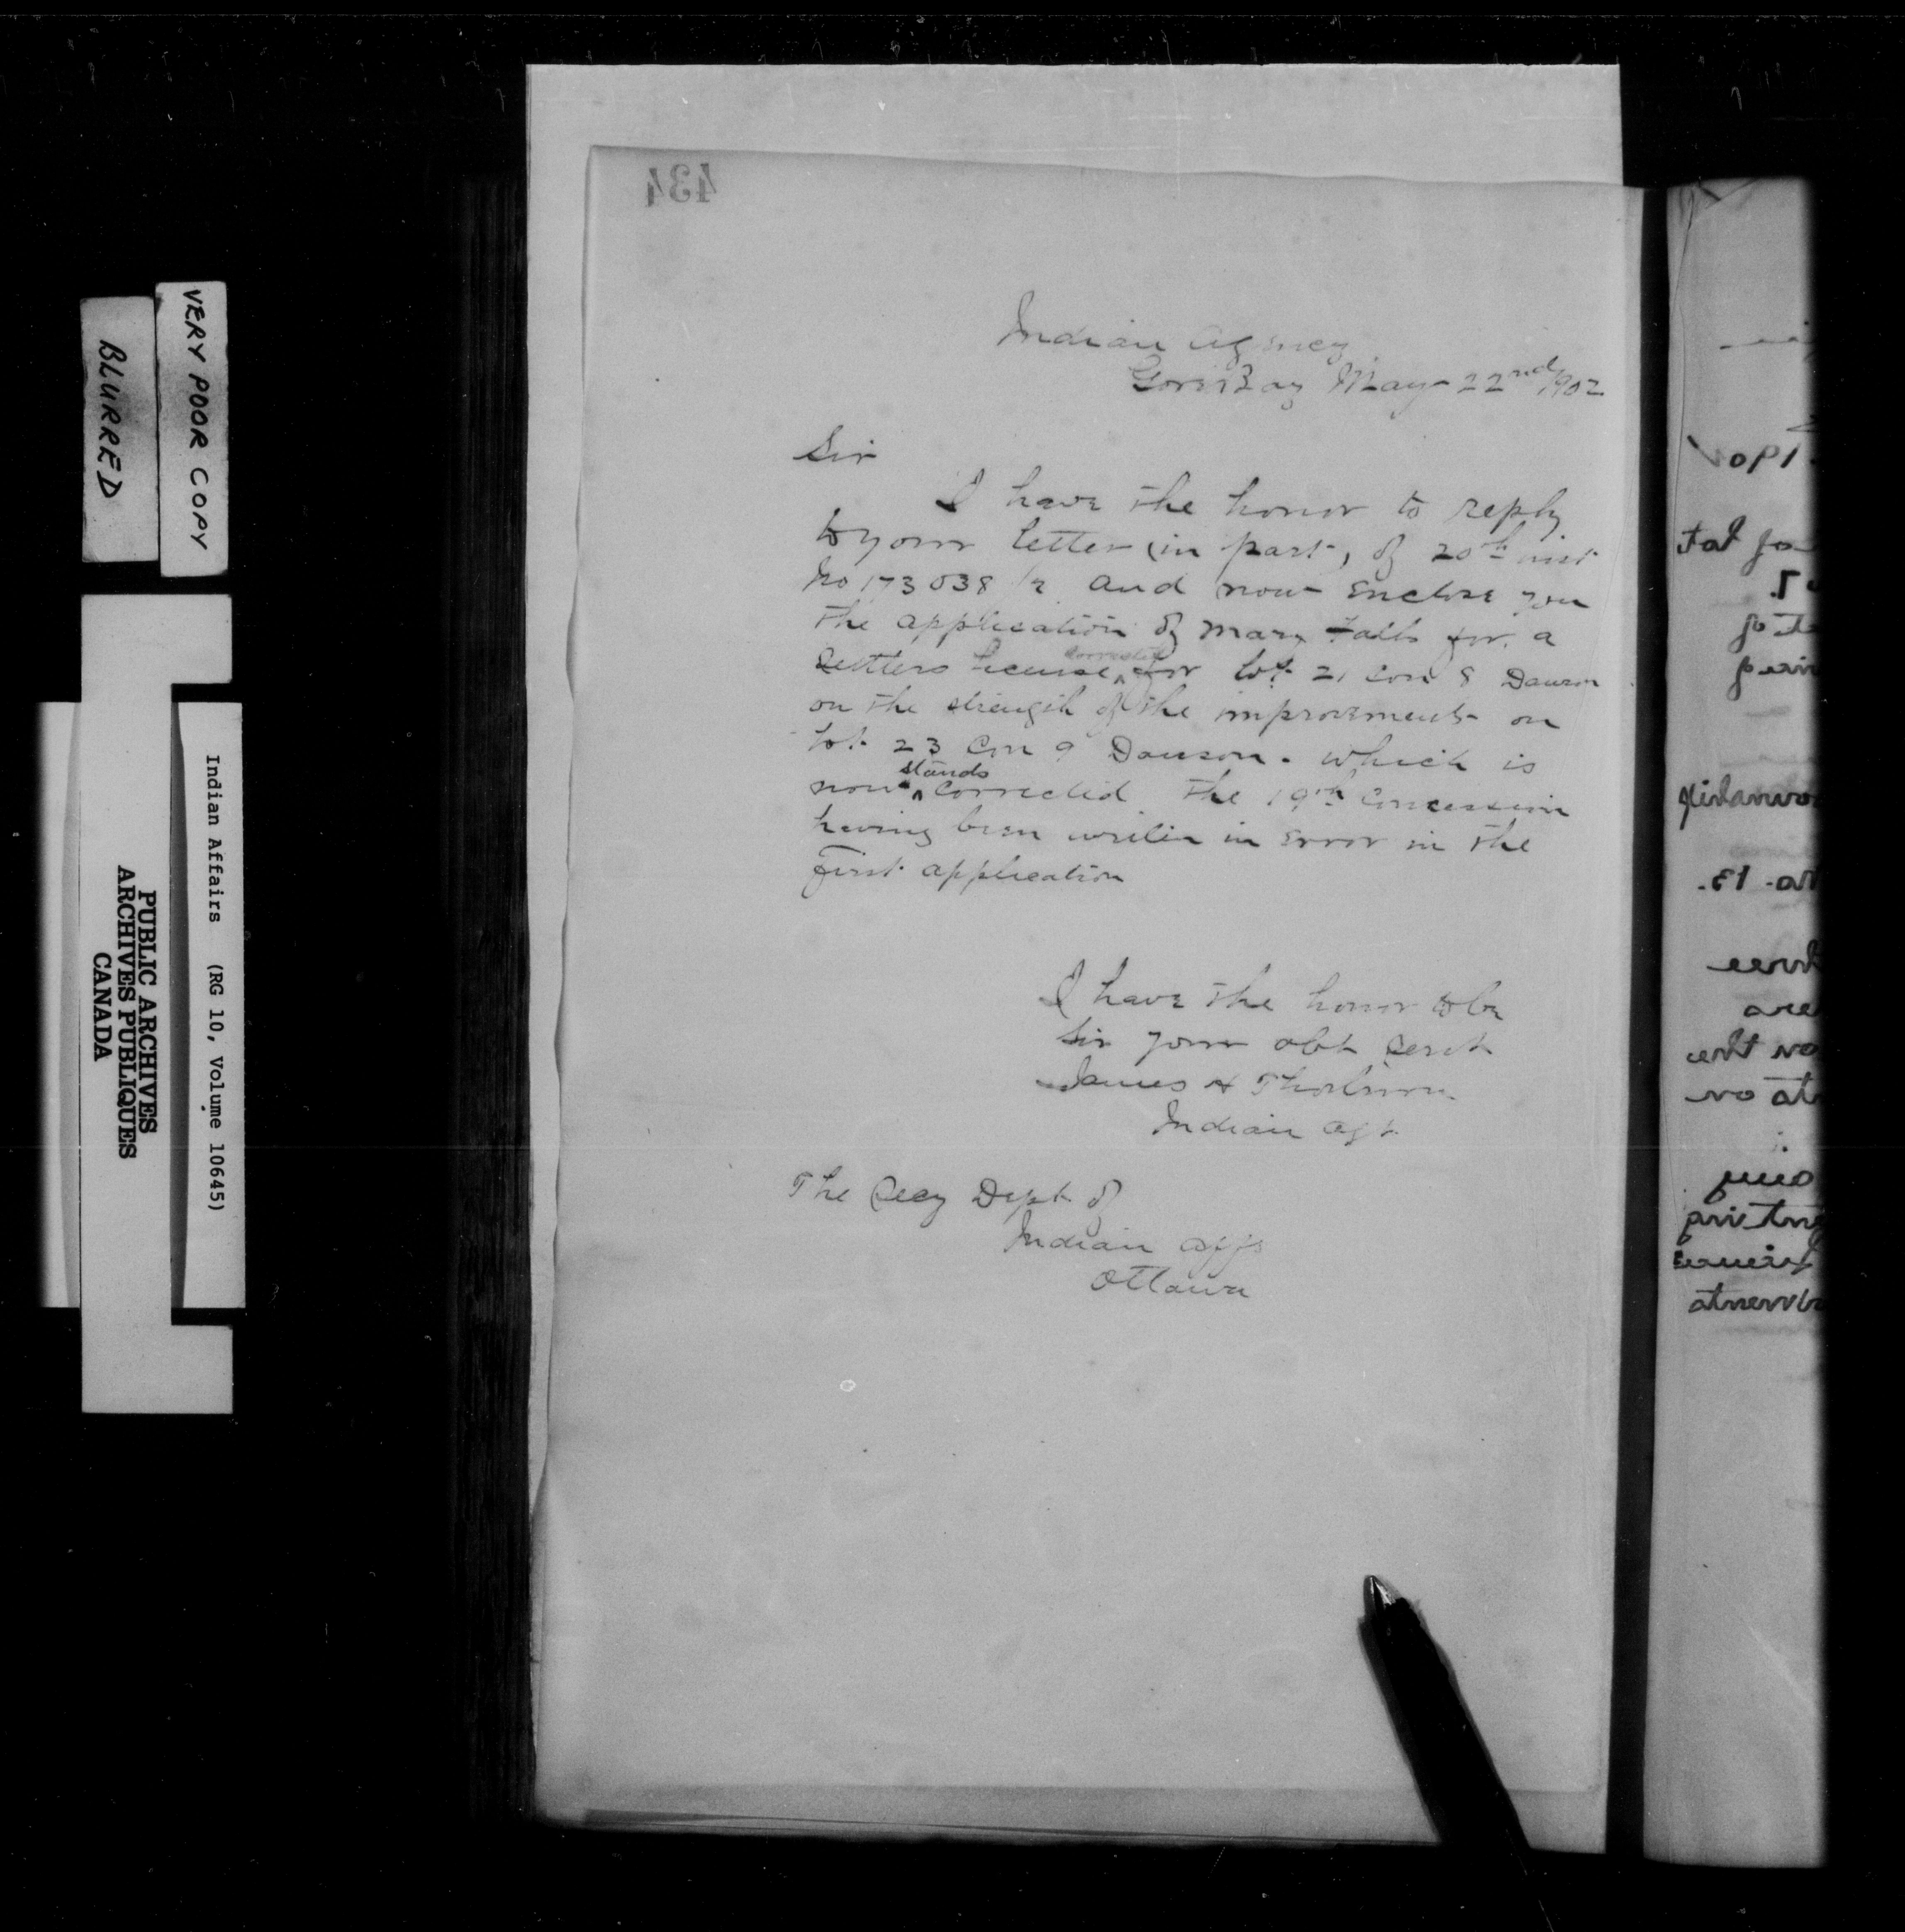 434
Indian Agency
Gore Bay May 22nd 1902
Sir
I have the honor to reply
to your letter (in part) of 20th inst
No 173038/2 and now enclose you
the application of Mary Falls for a
settlers license corrected for Lot 21 Con 8 Dawson
on the strength of the improvements on
Lot 23 Con 9 Dawson. which is
now stands corrected the 19th Concession
having been writen in error in the
First application
I have the honor to be
Sir your obt Servt
James H Thorburn
Indian Agt
The Secy Dept of
Indian Affs
Ottawa
VERY POOR COPY
BLURRED
Indian Affairs (RG 10, Volume 10645)
PUBLIC ARCHIVES
ARCHIVES PUBLIQUES
CANADA